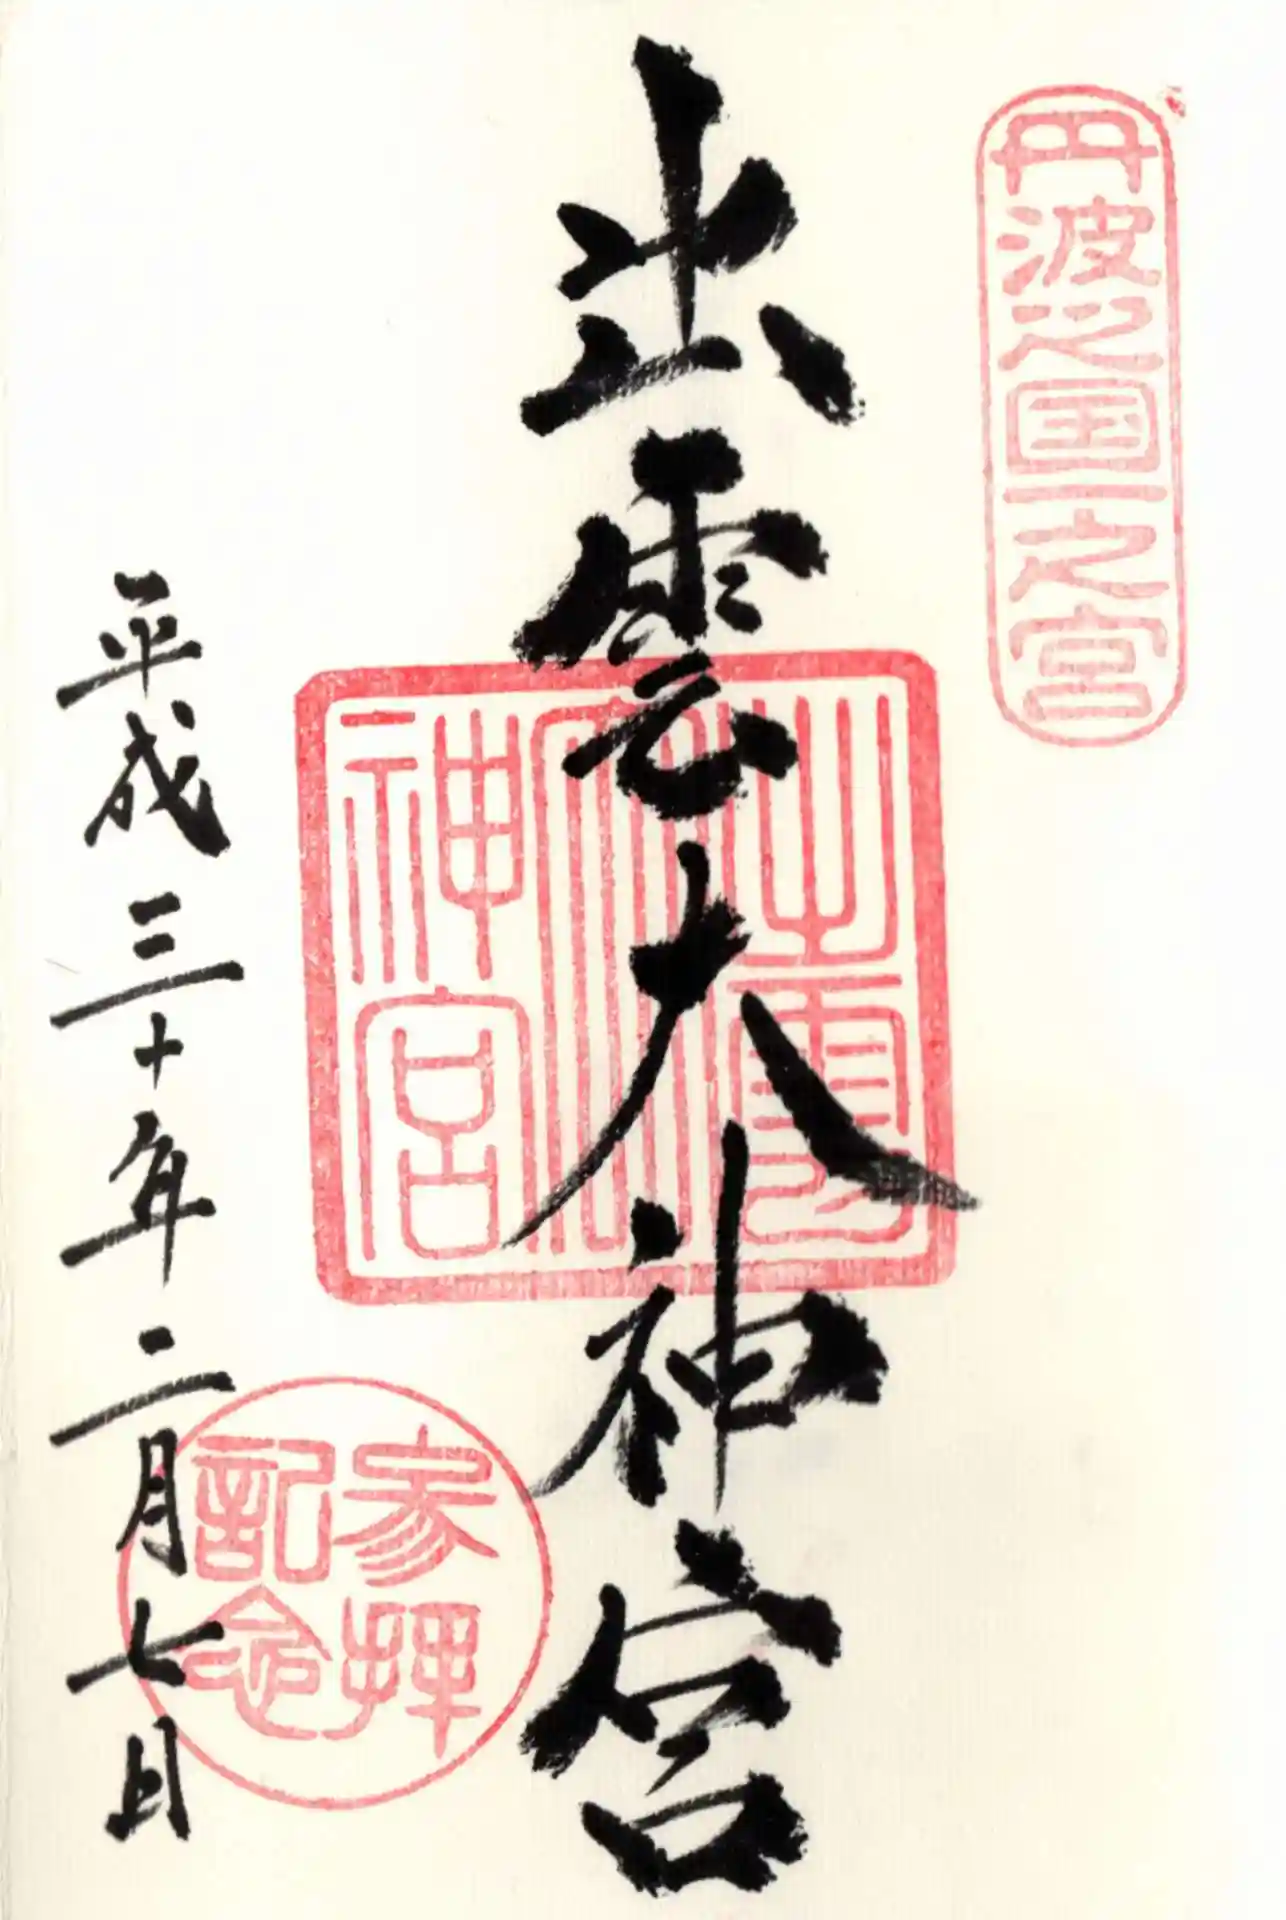 丹波之国一之宮
出雲大神宮
出雲大神宮
参拝記念
平成三十年二月七日